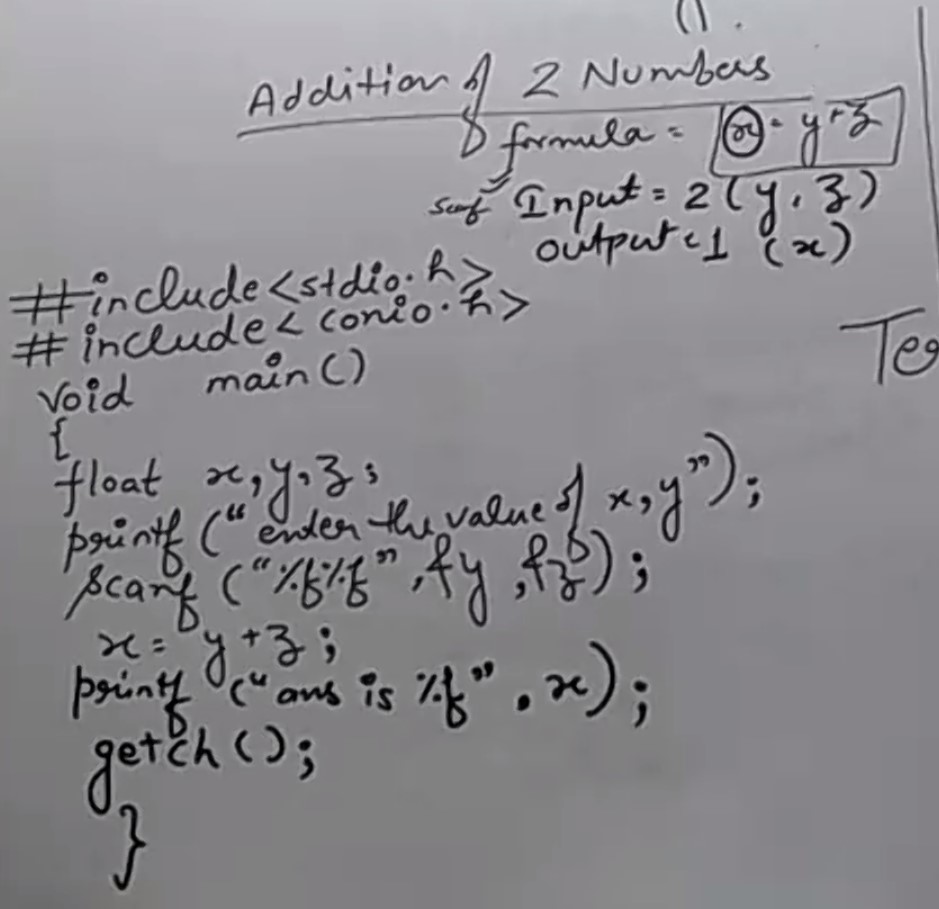 ().
Addition of 2 Numbers
formula = x = y+z
scanf Input = 2 (y, z)
output = 1 (x)
#include<stdio.h>
#include<conio.h>
Void main()
{
float x,y,z;
printf ("enter the value of x,y");
scanf ("%f%f",&y,&z);
x = y+z;
printf ("ans is %f", x);
getch();
}